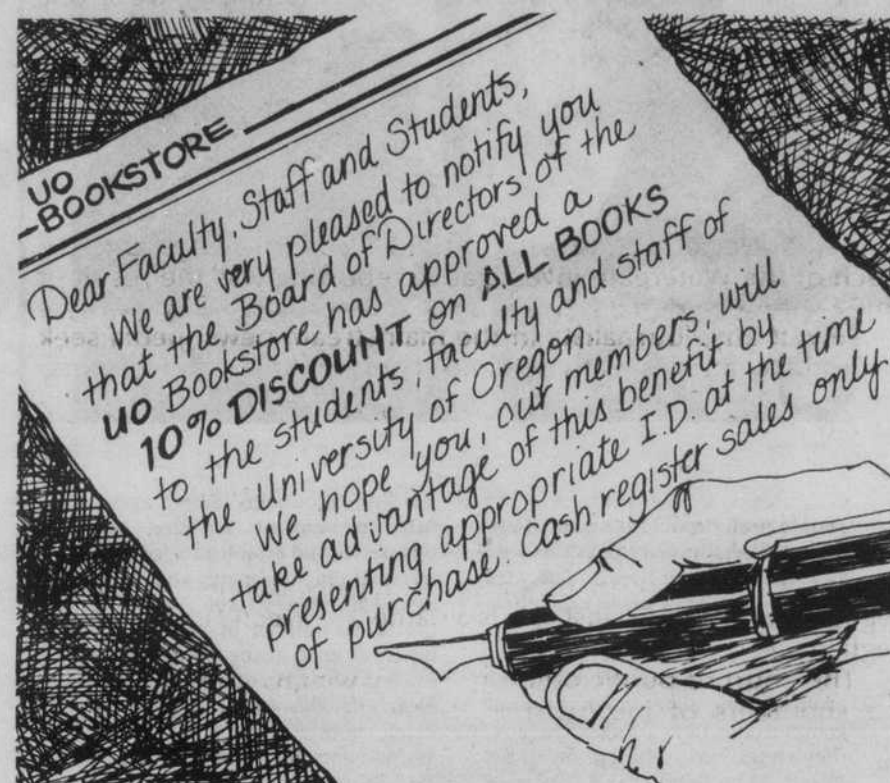 UO
BOOKSTORE
Dear Faculty, Staff and Students,
We are very pleased to notify you
that the Board of Directors of the
UO Bookstore has approved a
10% DISCOUNT on ALL BOOKS
to the students, faculty and staff of
the University of Oregon.
We hope you, our members, will
take advantage of this benefit by
presenting appropriate I.D. at the time
of purchase. Cash register sales only